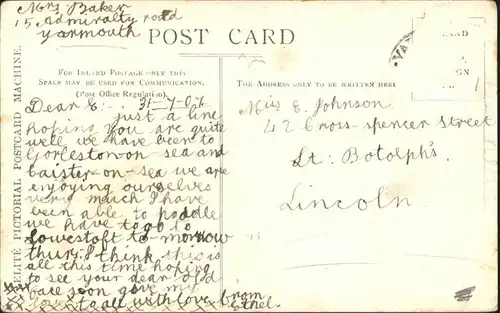 Mrs Baker
15 Admiralty road
Yarmouth
POST CARD
FOR INLAND POSTAGE ONLY THIS
SPACE MAY BE USED FOR COMMUNICATION.
(Post Office Regulation).
THE ADDRESS ONLY TO BE WRITTEN HERE
ELITE PICTORIAL POSTCARD MACHINE.
Dear E:-. 31-7-07
just a line
hoping you are quite
well we have been to
Gorleston-on sea and
caister-on-sea we are
enjoying ourselves
very much I have
been able to paddle
we have to go to
Lowestoft to-morrow
thurs. I think this is
all this time hoping
to see your dear old
face soon give my
love to all with love from
Ethel.
Miss E. Johnson.
42 Cross-spencer street
St: Botolph's.
Lincoln.